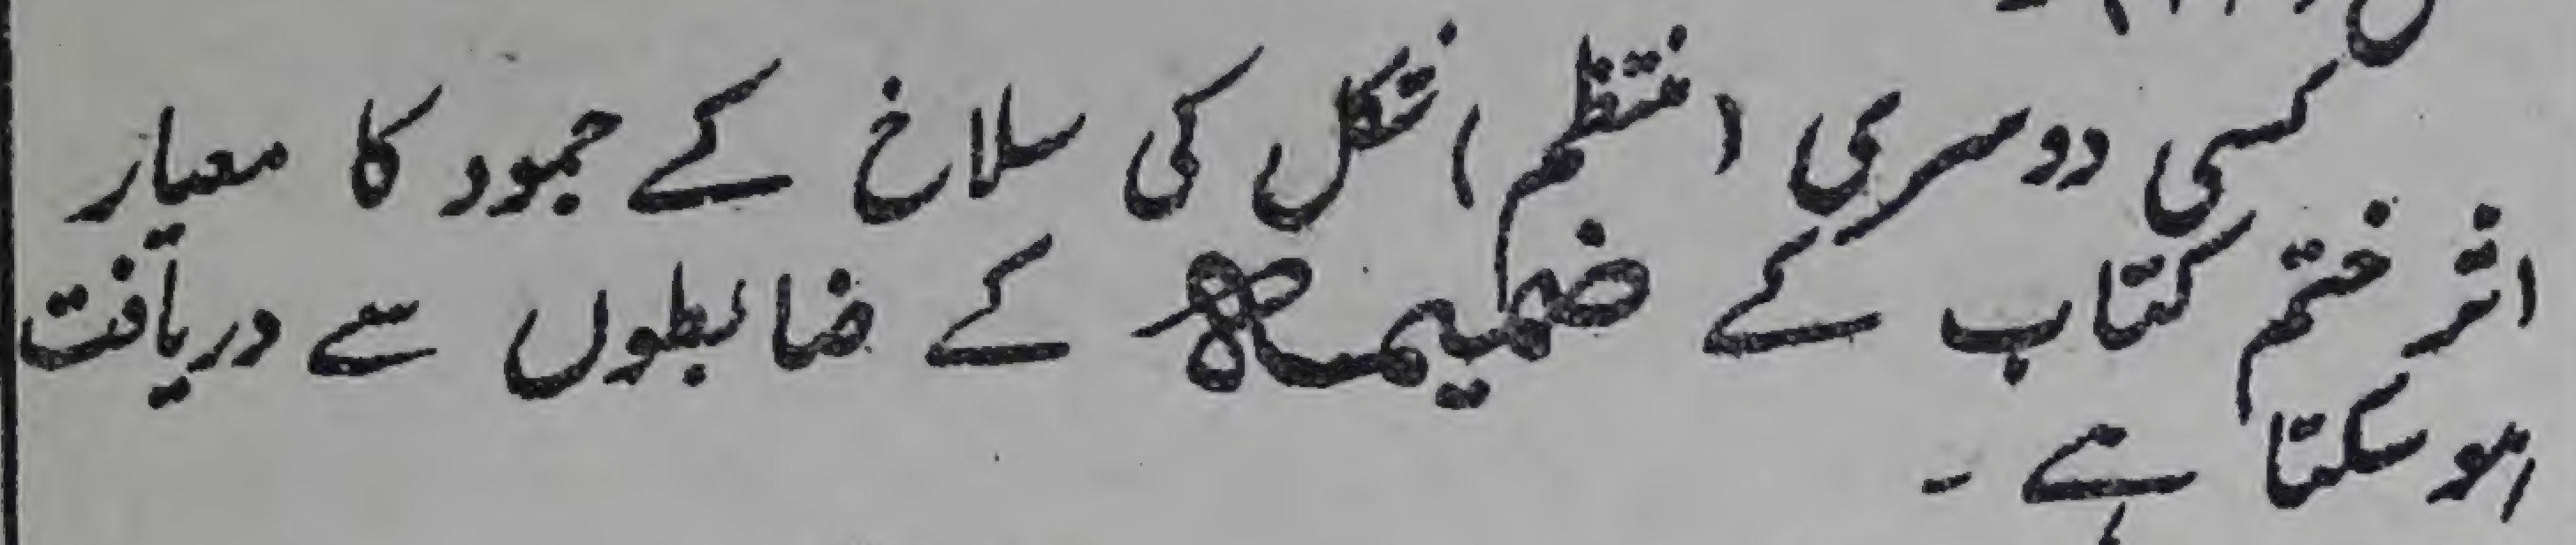 کسی دوسری (منتظم) شکل کی سلاخ کے جمود کا معیار
اثر ختم کتاب کے ضمیمہ کے ضابطوں سے دریافت
ہو سکتا ہے ۔